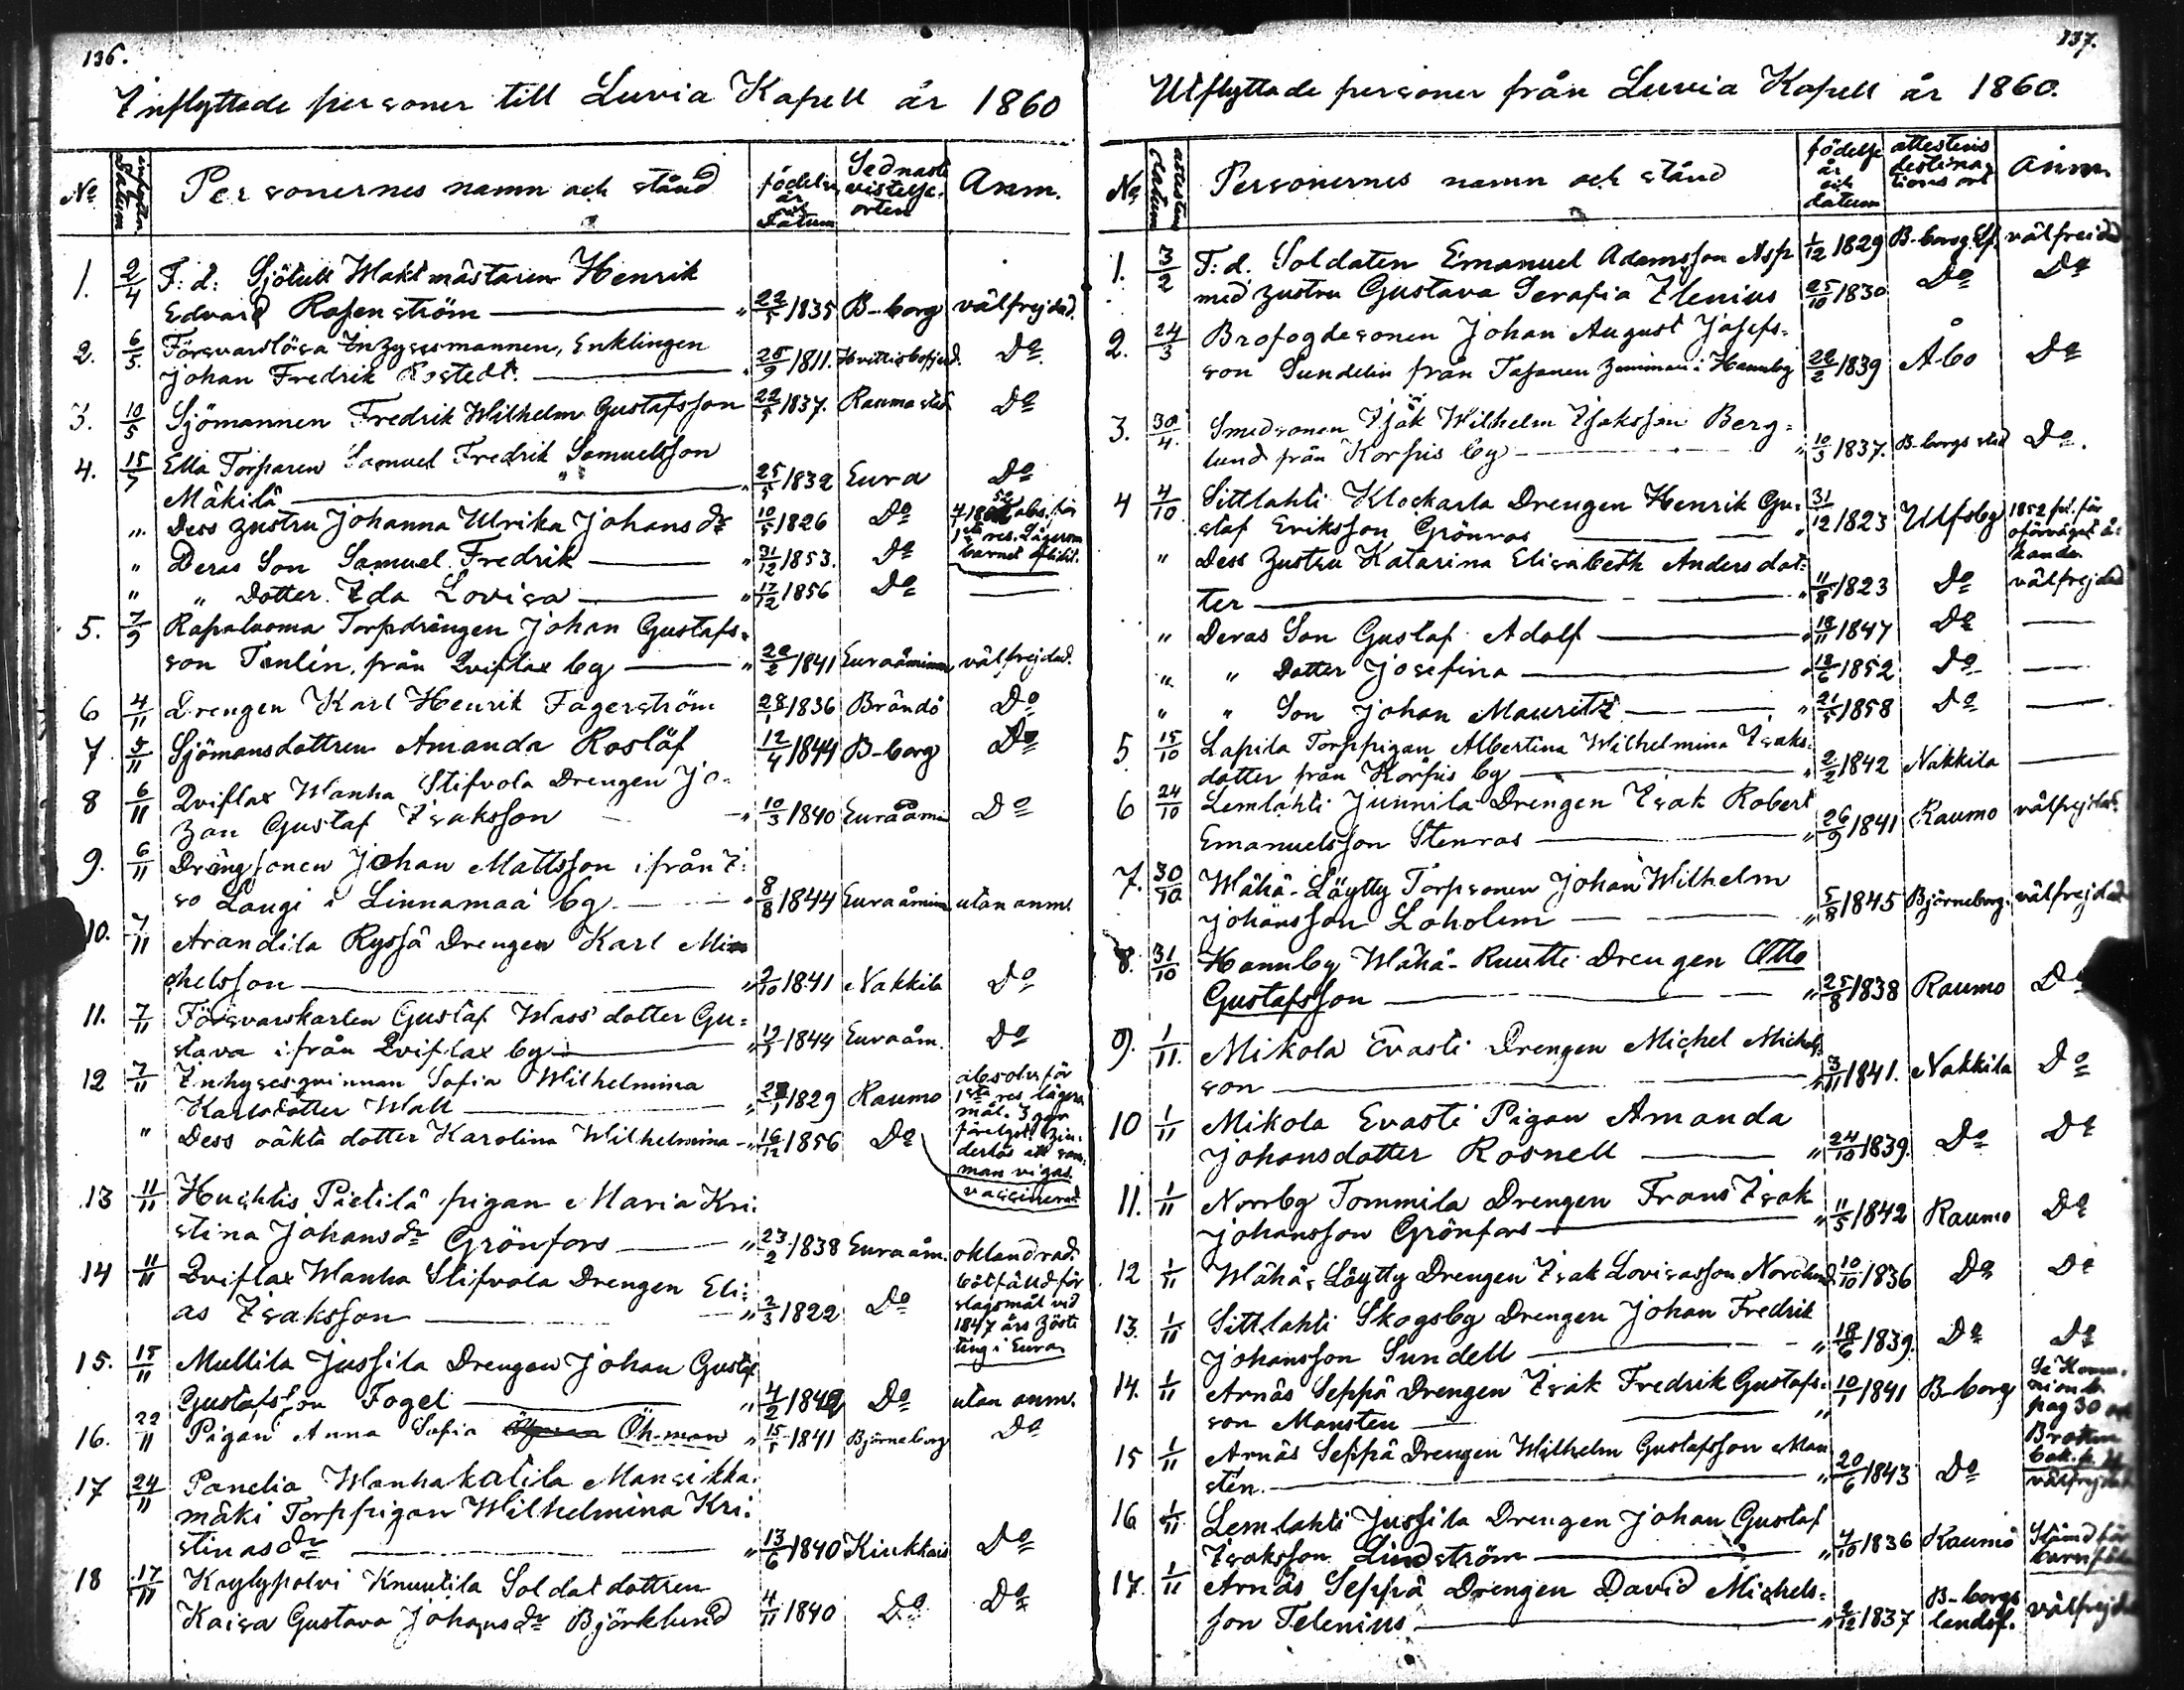 136.
Inflyttade personer till Luvia Kapell år 1860
No
Datum
Personernes namn och stånd
födelse år och Datum
Sednaste vistelse-orten
Anm.
1. 2/4 F: d: Sjötull Waktmästaren Henrik
Edvard Rosenström " 22/5 1835 B-borg välfrejdad.
2. 6/5. Försvarslösa Inhysesmannen, Enklingen
Johan Fredrik Rostedt. " 25/9 1811. Hvittisbofjerd. Do
3. 10/5 Sjömannen Fredrik Wilhelm Gustafsson 22/5 1837. Rauma stad Do
4. 15/5 Ella Torparen Samuel Fredrik Samuelsson
Mäkilä " 25/5 1832 Eura Do
" Dess hustru Johanna Ulrika Johansdr 10/5 1826 Do abs. för
1sta res. Lägersm
" Deras Son Samuel Fredrik " 31/12 1853. Do barnet aflidit.
" " Dotter Ida Lovisa " 17/12 1856 Do
5. 7/9 Rapaluoma Torpdrängen Johan Gustafs-
son Tenlén, från Qviflax by " 22/2 1841 Euraåminne välfrejdad.
6 4/11 Drengen Karl Henrik Fagerström 28/1 1836 Brändö Do
7 5/11 Sjömansdottren Amanda Roslöf 12/4 1844 B-borg Do
8 6/11 Qviflax Wanha Stifvola Drengen Jo-
han Gustaf Isaksson " 10/3 1840 Euraåmin Do
9. 6/11 Drängsonen Johan Mattsson ifrån I:
so Laugi i Linnamaa by " 8/8 1844 Euraåmin utan anm.
10. 7/11 Arandila Ryssä Drengen Karl Mi
chelsson " 2/10 1841 Nakkila Do
11. 7/11 Försvarskarlen Gustaf Wass' dotter Gu-
stava ifrån Qviflax by " 1844 Euraåm. Do
12 7/11 Inhysesqvinnan Sofia Wilhelmina
Karlsdotter Wall " 1829 Raumo absolv. för
1sta res. lägers
mål. 3 ger
" Dess oäkta dotter Karolina Wilhelmina " 16/12 1856 Do förelyst. hin-
derlös att sam-
man vigas.
vaccinerad
13 11/11 Huchtis Pietilä pigan Maria Kri-
stina Johansdr Grönfors " 23/2 1838 Euraåm. oklandrad.
14 11/11 Qviflax Wanha Stifvola Drengen Eli-
as Isaksson " 2/3 1822 Do botfälld för
slagsmål vid
1847 års höste
ting i Eura.
15. 15/11 Mullila Jussila Drengen Johan Gustaf
Gustafsson Fogel " 4/2 1842 Do utan anm.
16. 22/11 Pigan Anna Sofia Öhman " 15/5 1841 Björneborg Do
17 24/11 Panelia Wanhakatila Mansikka-
mäki Torppigan Wilhelmina Kri-
stinasdr " 13/6 1840 Kiukkais Do
18 17/11 Köylypolvi Knuutila Soldatdottren
Kaisa Gustava Johansdr Björklund 4/11 1840 Do Do
137.
Utflyttade personer från Luvia Kapell år 1860.
No
attestens datum
Personernes namn och stånd
födelse år och datum
attestens destinations ort
Anm.
1. 3/2 F: d. Soldaten Emanuel Adamsson Asp 1/12 1829 B-borg. Lf. välfrejdad
med hustru Gustava Serafia Ilenius 25/10 1830 Do Do
2. 24/3 Brofogdesonen Johan August Josefs-
son Sundelin från Tasanen hemman i Hannby 22/2 1839 Åbo Do
3. 30/4. Smedsonen Isak Wilhelm Isaksson Berg-
lund från Korpis by " 10/3 1837. B-borgs stad Do.
4 4/10 Sittlahti Klockarla Drengen Henrik Gu-
staf Eriksson Grönroos " 31/12 1823 Ulfsby 1852 för
oförväget å-
kande.
" Dess hustru Katarina Elisabeth Andersdot-
ter " 11/8 1823 Do välfrejdad
" Deras Son Gustaf Adolf " 18/11 1847 Do
" " Dotter Josefina " 18/6 1852 Do
" " Son Johan Mauritz " 21/5 1858 Do
5 15/10 Lapila Torppigan Albertina Wilhelmina Isaks-
dotter från Korpis by " 2/2 1842 Nakkila
6 24/10 Lemlahti Junnila Drengen Isak Robert
Emanuelsson Stenroos " 26/9 1841 Raumo välfrejdad.
7. 30/10 Wähä-Löytty Torpsonen Johan Wilhelm
Johansson Loholm " 5/8 1845 Björneborg. välfrejdad
8. 31/10 Hannby Wähä-Ruutti Drengen Otto
Gustafsson " 25/8 1838 Raumo Do
9. 1/11. Mikola Evasti Drengen Michel Michels-
son " 3/11 1841. Nakkila Do
10 1/11 Mikola Evasti Pigan Amanda
Johansdotter Rosnell " 24/10 1839. Do Do
11. 1/11 Norrby Tommila Drengen Frans Isak
Johansson Grönfors " 11/5 1842 Raumo Do
12 1/11 Wähä-Löytty Drengen Isak Lovisasson Nordlund 10/10 1836 Do Do
13. 1/11 Sittlahti Skogsby Drengen Johan Fredrik
Johansson Sundell " 18/6 1839. Do Do
14. 1/11 Arnäs Seppä Drengen Isak Fredrik Gustafs-
son Mansten " 10/1 1841 B-borg Se Komu-
nion b.
pag 30 och
Brottm
bok. p.
15 1/11 Arnäs Seppä Drengen Wilhelm Gustafsson Man
sten. " 20/6 1843 Do välfrejdad
16 1/11 Lemlahti Jussila Drengen Johan Gustaf
Isaksson Lindström " 4/10 1836 Raumo Stämd för
barnföda
17. 1/11 Arnäs Seppä Drengen David Michels-
son Telenius " 2/12 1837 B-borgs
landsf. välfrejdad